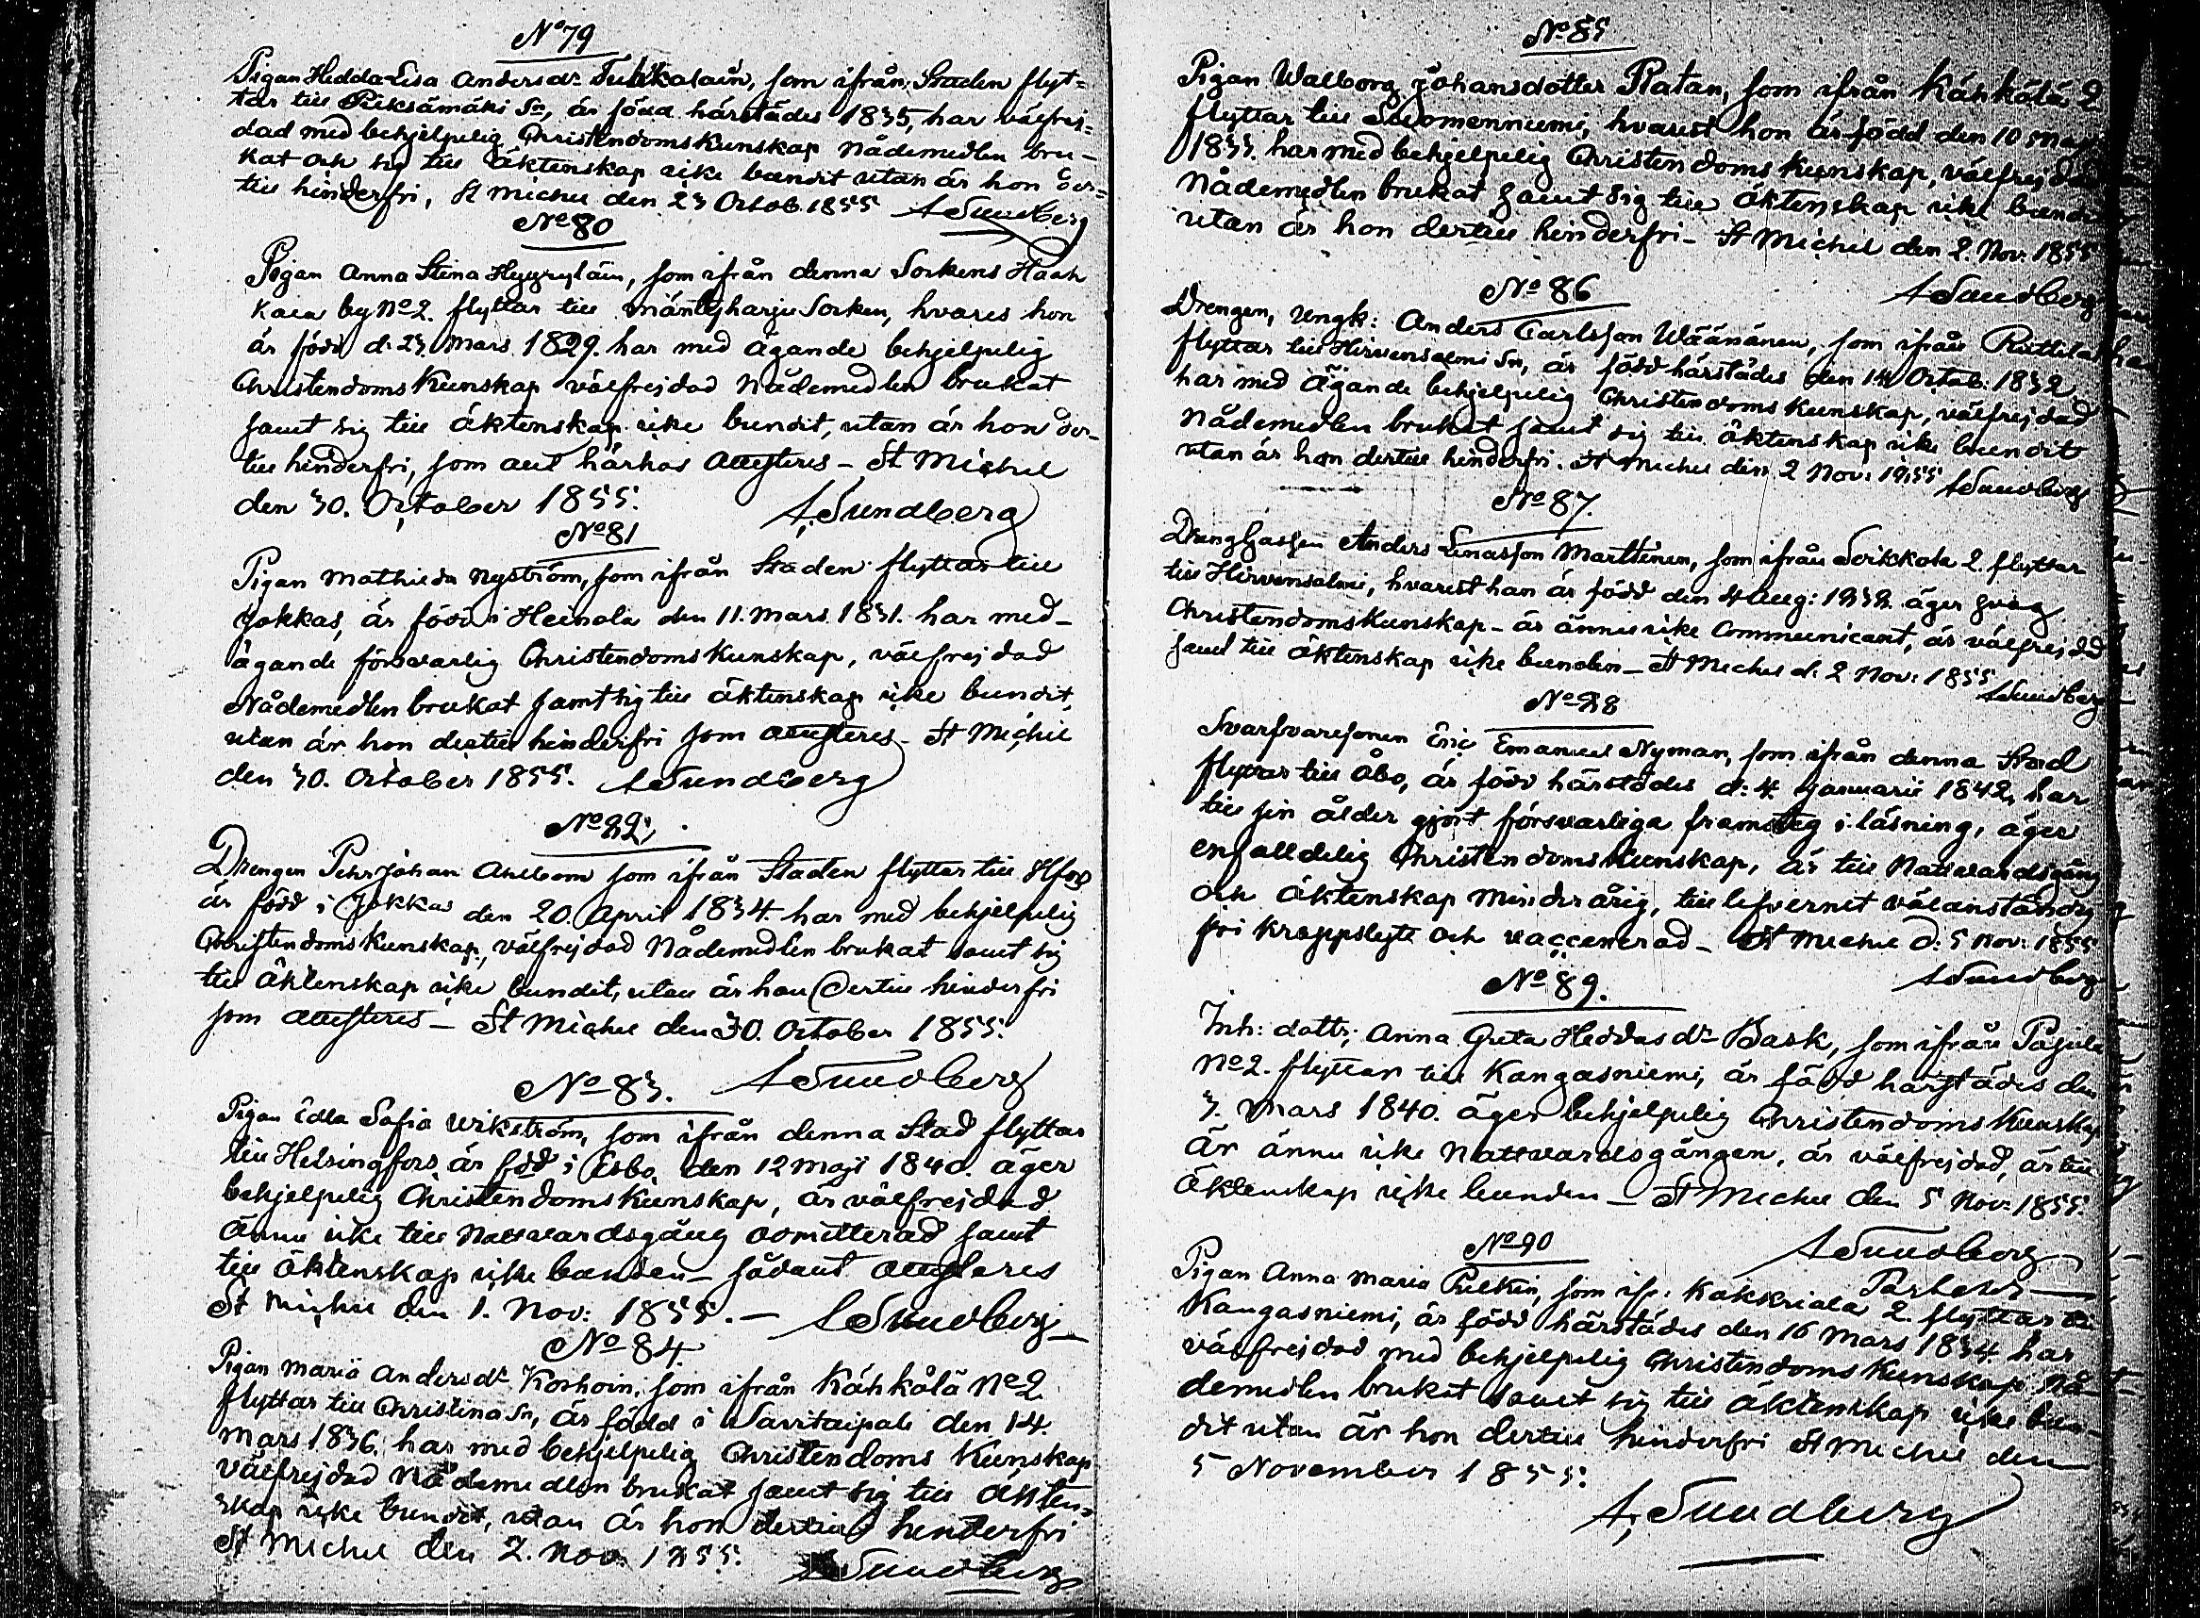 No 79
Pigan Hedda Lisa Andersdr Tuhkalain, som ifrån Staden flyt=
tar till Pieksämäki Sn, är född härstädes 1835, har välfrej=
dad med behjelpelig Christendoms Kunskap Nådemedlen bru-
kat och sig till äktenskap icke bundit utan är hon der=
till hinderfri, St Michel den 23 Octob. 1855 A Sundberg
No 80
Pigan Anna Stina Hyyryläin, som ifrån denna Sockens Haah
kala by No 2. flyttar till Mäntyharju Socken, hvares hon
är född d. 23 Mars 1829. har med ägande behjelpelig
Christendoms Kunskap välfrejdad Nådemedlen brukat
samt sig till äktenskap icke bundit, utan är hon der-
till hinderfri, som här attesteres - St Michel
den 30. October 1855. A. Sundberg
No 81
Pigan Mathilda Nyström, som ifrån Staden flyttar till
Jokkas, är född i Heinola den 11. Mars 1831. har med-
ägande försvarlig Christendoms Kunskap, välfrejdad
Nådemedlen brukat samt sig till äktenskap icke bundit,
utan är hon dertill hinderfri som attesteres - St Michel
den 30. October 1855. A Sundberg
No 82.
Drengen Pehr Johan Ahlbom som ifrån Staden flyttar till Hfors
är född i Jokkas den 20. April 1834. har med behjelpelig
Christendoms Kunskap, välfrejdad Nådemedlen brukat samt sig
till äktenskap icke bundit, utan är han dertill hinderfri
som attesteres - St Michel den 30. October 1855.
A Sundberg
No 83.
Pigan Edla Sofia Wikström, som ifrån denna Stad flyttar
till Helsingfors är född i Esbo den 12 Maji 1840. äger
behjelpelig Christendoms Kunskap, är välfrejdad
ännu icke till Nattvardsgång admitterad samt
till äktenskap icke bunden - sådant attesteres
St Michel den 1. Nov: 1855. - A Sundberg
No 84.
Pigan Maria Andersdr Korhoin, som ifrån Kähkölä No 2
flyttar till Christina Sn, är född i Savitaipale den 14.
Mars 1836. har med behjelpelig Christendoms Kunskap
välfrejdad Nådemedlen brukat samt sig till äkten=
skap icke bundit, utan är hon dertill hinderfri
St Michel den 2. Nov. 1855. A Sundberg
No 85
Pigan Walborg Johansdotter Ratan, som ifrån Kähkölä 2
flyttar till Suomenniemi, hvarest hon är född den 10 Maj
1833. har med behjelpelig Christendoms Kunskap, välfrejdad
Nådemedlen brukat samt sig till äktenskap icke bundit
utan är hon dertill hinderfri - St Michel den 2. Nov. 1855
A Sundberg
No 86
Drengen, Ungk: Anders Carlsson Wäänänen, som ifrån Rottila
flyttar till Hirvensalmi Sn, är född härstädes den 14 Octob: 1832
har med ägande behjelpelig Christendoms Kunskap, välfrejdad
Nådemedlen brukat samt sig till äktenskap icke bundit
utan är han dertill hinderfri. St Michel den 2 Nov: 1855 A Sundberg
No 87.
Drenggassen Anders Enasson Marttinen, som ifrån Seikkola 2. flyttar
till Hirvensalmi, hvarest han är född den 4 Aug: 1838 äger svag
Christendoms Kunskap - är ännu icke Communicant, är välfrejdad
samt till äktenskap icke bunden - St Michel d. 2 Nov: 1855
A Sundberg
No 88
Svarfvaresonen Eric Emanuel Nyman, som ifrån denna Stad
flyttar till Åbo, är född härstädes d: 4. Januarii 1842, har
till sin ålder gjort försvarliga framsteg i läsning, äger
enfalldelig Christendoms Kunskap, är till Nattvardsgång
och äktenskap minderårig, till lefvernet välanständig
fri kroppslyte och vaccinerad - St Michel d: 5 Nov: 1855
A Sundberg
No 89.
Inh: dottr: Anna Greta Heddas dr Bask, som ifrån Pajula
No 2. flyttar till Kangasniemi, är född härstädes den
3. Mars 1840. äger behjelpelig Christendoms Kunskap
Är ännu icke Nattvardsgången, är välfrejdad, är till
äktenskap icke bunden - St Michel den 5 Nov. 1855.
A Sundberg
No 90
Pigan Anna Maria Pulkin, som ifr: Kakkriala 2. flyttar till
Kangasniemi, är född härstädes den 16 Mars 1834. har
välfrejdad med behjelpelig Christendoms Kunskap Nå-
demedlen brukat samt sig till äktenskap icke bun-
dit utan är hon dertill hinderfri St Michel den
5 November 1855.
A, Sundberg